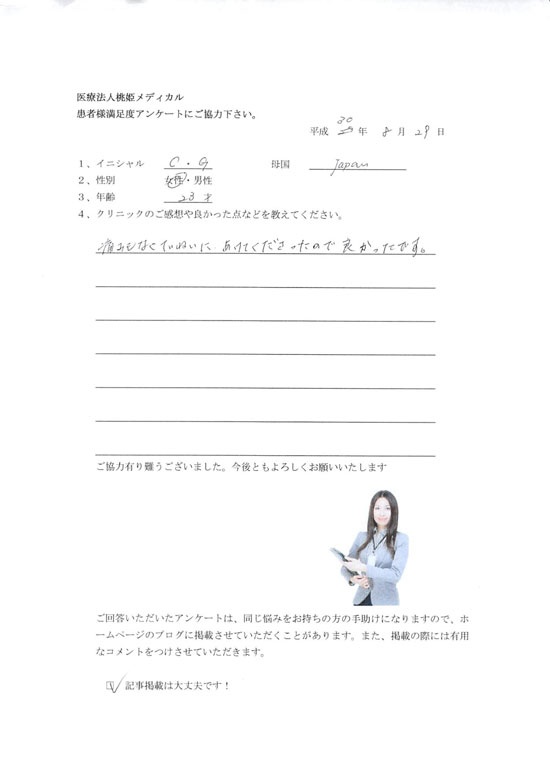 医療法人桃姫メディカル
患者様満足度アンケートにご協力下さい。
平成 30 年 8 月 29 日
1、イニシャル C・G 母国 Japan
2、性別 女性・男性
3、年齢 23才
4、クリニックのご感想や良かった点などを教えてください。
痛みもなくていねいに あけてくださったので 良かったです。
ご協力有り難うございました。今後ともよろしくお願いいたします
ご回答いただいたアンケートは、同じ悩みをお持ちの方の手助けになりますので、ホ
ームページのブログに掲載させていただくことがあります。また、掲載の際には有用
なコメントをつけさせていただきます。
記事掲載は大丈夫です！